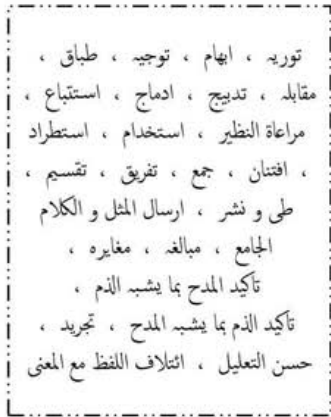 توریہ ، ابھام ، توجیہ ، طباق ،
مقابلہ ، تدبیج ، ادماج ، استتباع ،
مراعاة النظیر ، استخدام ، استطراد
، افتنان ، جمع ، تفریق ، تقسیم ،
طی و نشر ، ارسال المثل و الکلام
الجامع ، مبالغہ ، مغایرہ ،
تاکید المدح بما یشبہ الذم ،
تاکید الذم بما یشبہ المدح ، تجرید ،
حسن التعلیل ، ائتلاف اللفظ مع المعنی